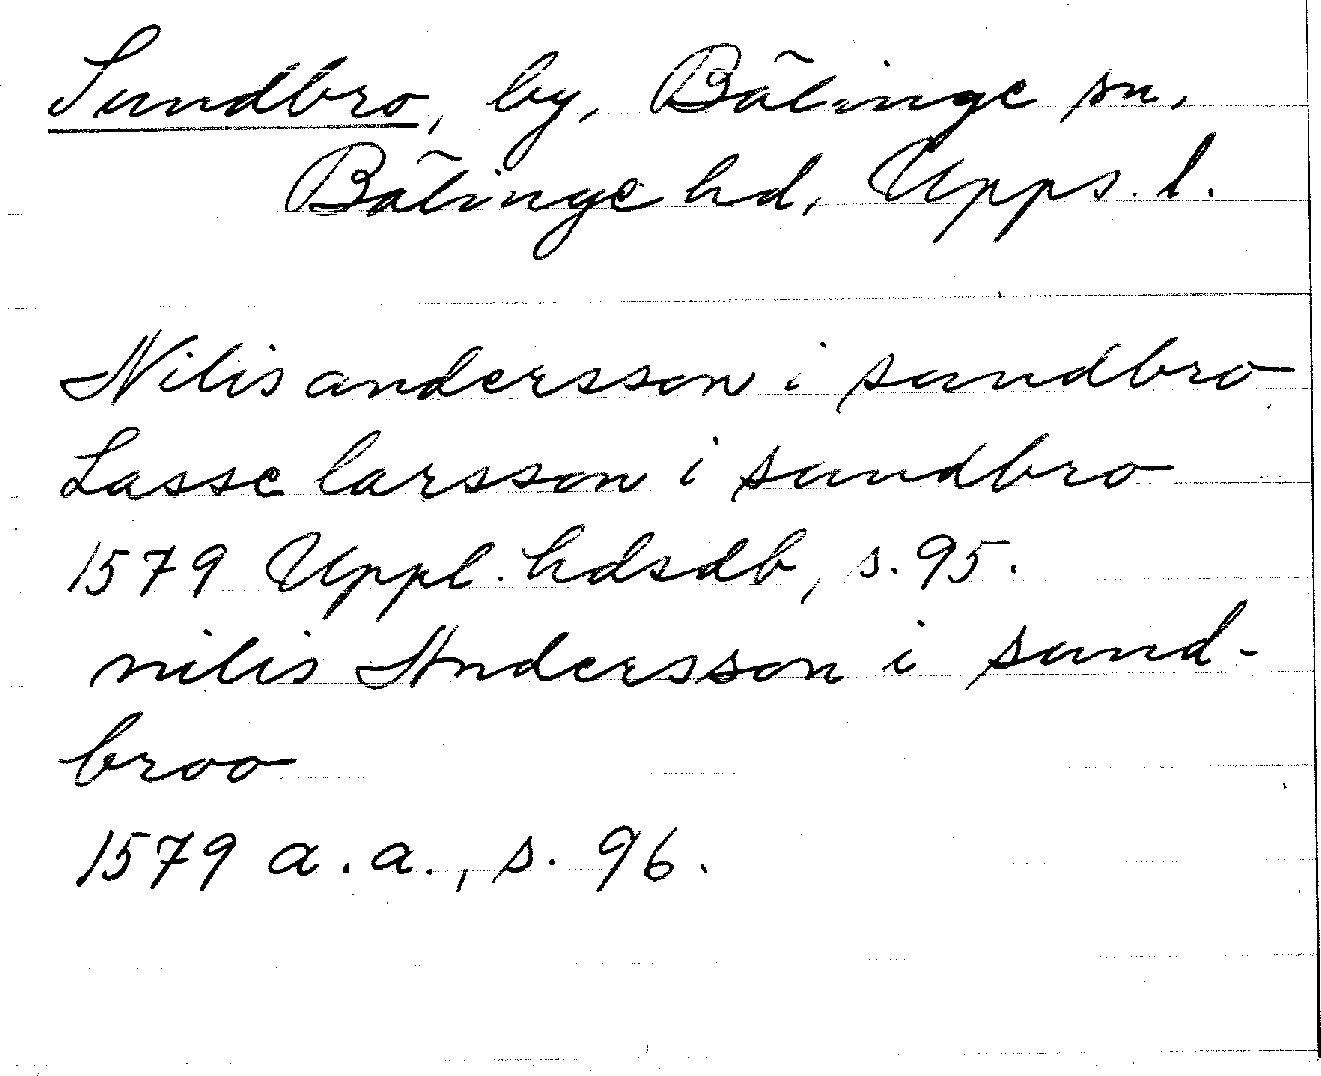 Sundbro, by, Bälinge sn,
Bälinge hd, Upps. l.
Nilis andersson i sundbro
Lasse larsson i sundbro
1579 Uppl. hdsdb, s. 95.
nilis Andersson i sund-
broo
1579 a.a., s. 96.